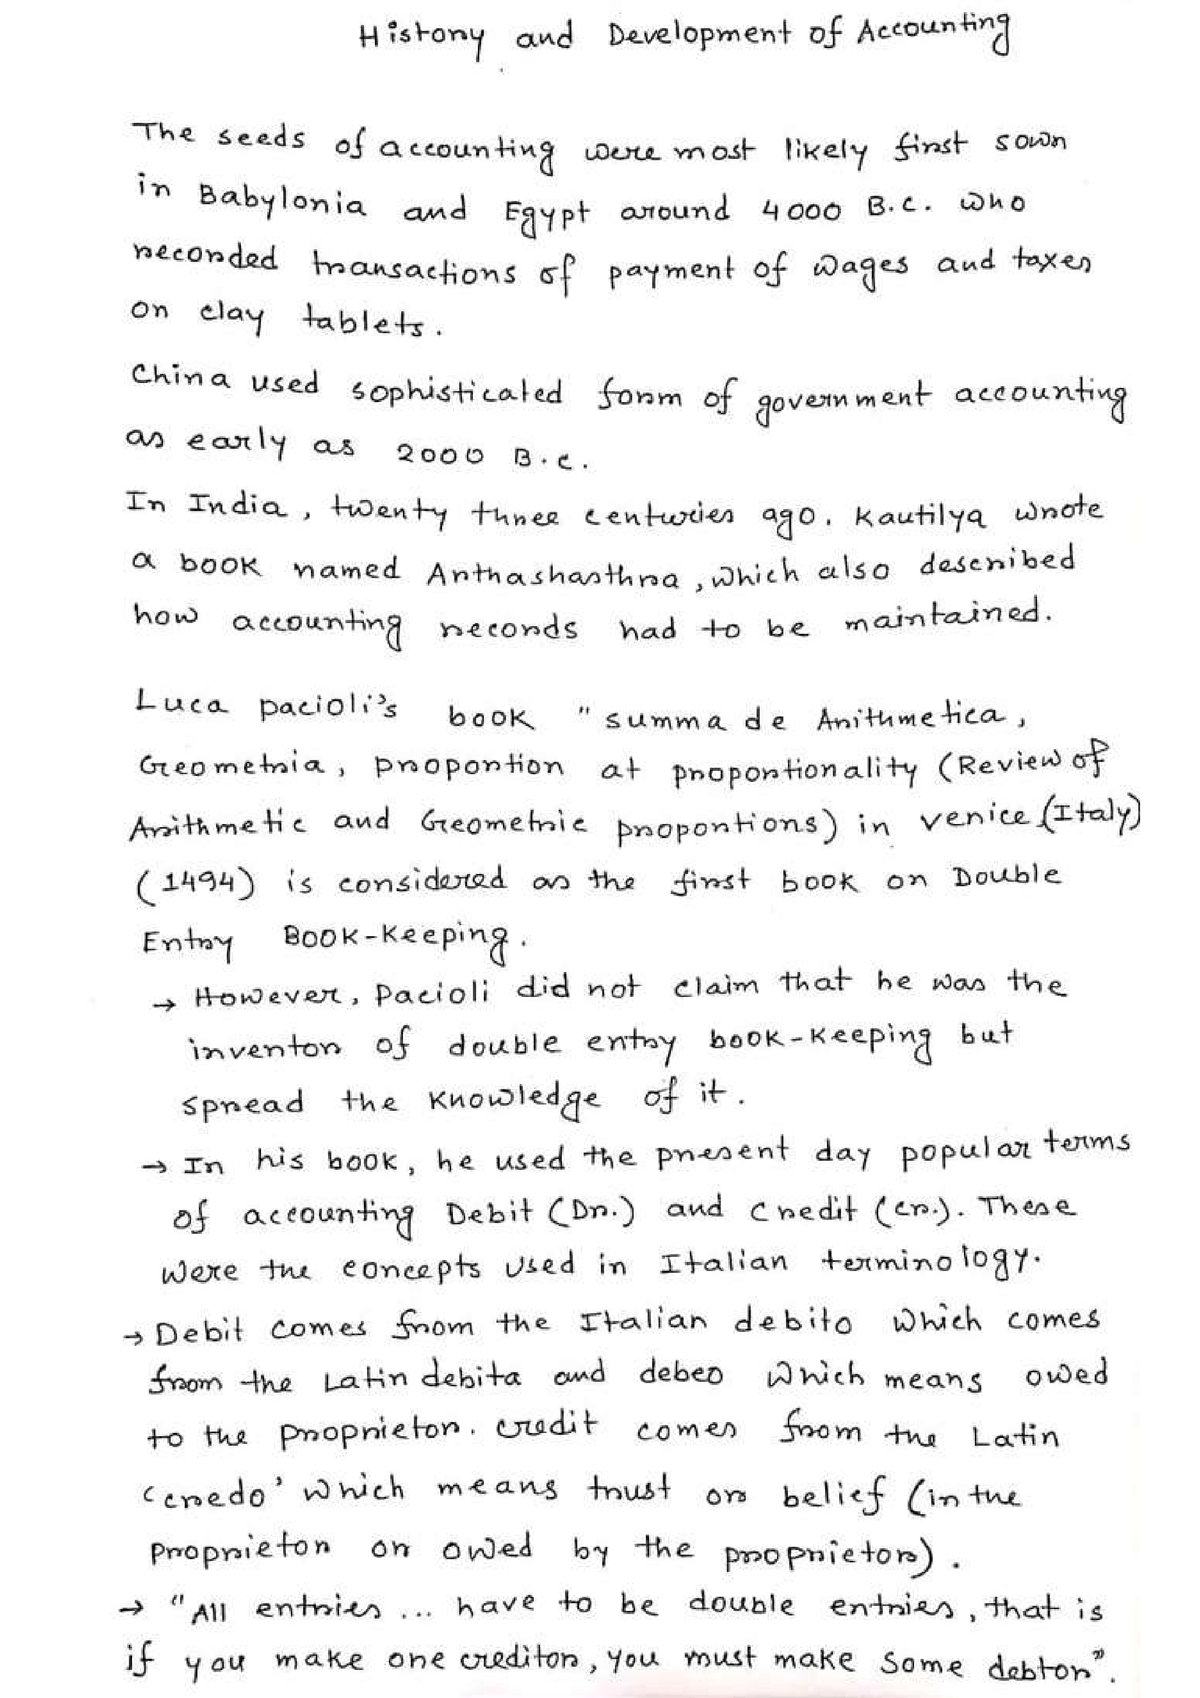 History and Development of Accounting
The seeds of accounting were most likely first sown
in Babylonia and Egypt around 4000 B.C. who
recorded transactions of payment of wages and taxes
on clay tablets.
China used sophisticated form of government accounting
as early as 2000 B.C.
In India, twenty three centuries ago, Kautilya wrote
a book named Arthashasthra, which also described
how accounting records had to be maintained.
Luca pacioli's book "summa de Arithmetica,
Geometria, proportion at proportionality (Review of
Arithmetic and Geometric proportions) in venice (Italy)
(1494) is considered as the first book on Double
Entry Book-Keeping.
→ However, Pacioli did not claim that he was the
inventor of double entry book-keeping but
spread the knowledge of it.
→ In his book, he used the present day popular terms
of accounting Debit (Dr.) and credit (cr.). These
were the concepts used in Italian terminology.
→ Debit comes from the Italian debito which comes
from the Latin debita and debeo which means owed
to the proprietor. credit comes from the Latin
'credo' which means trust or belief (in the
proprietor or owed by the proprietor).
→ "All entries ... have to be double entries, that is
if you make one creditor, you must make some debtor".